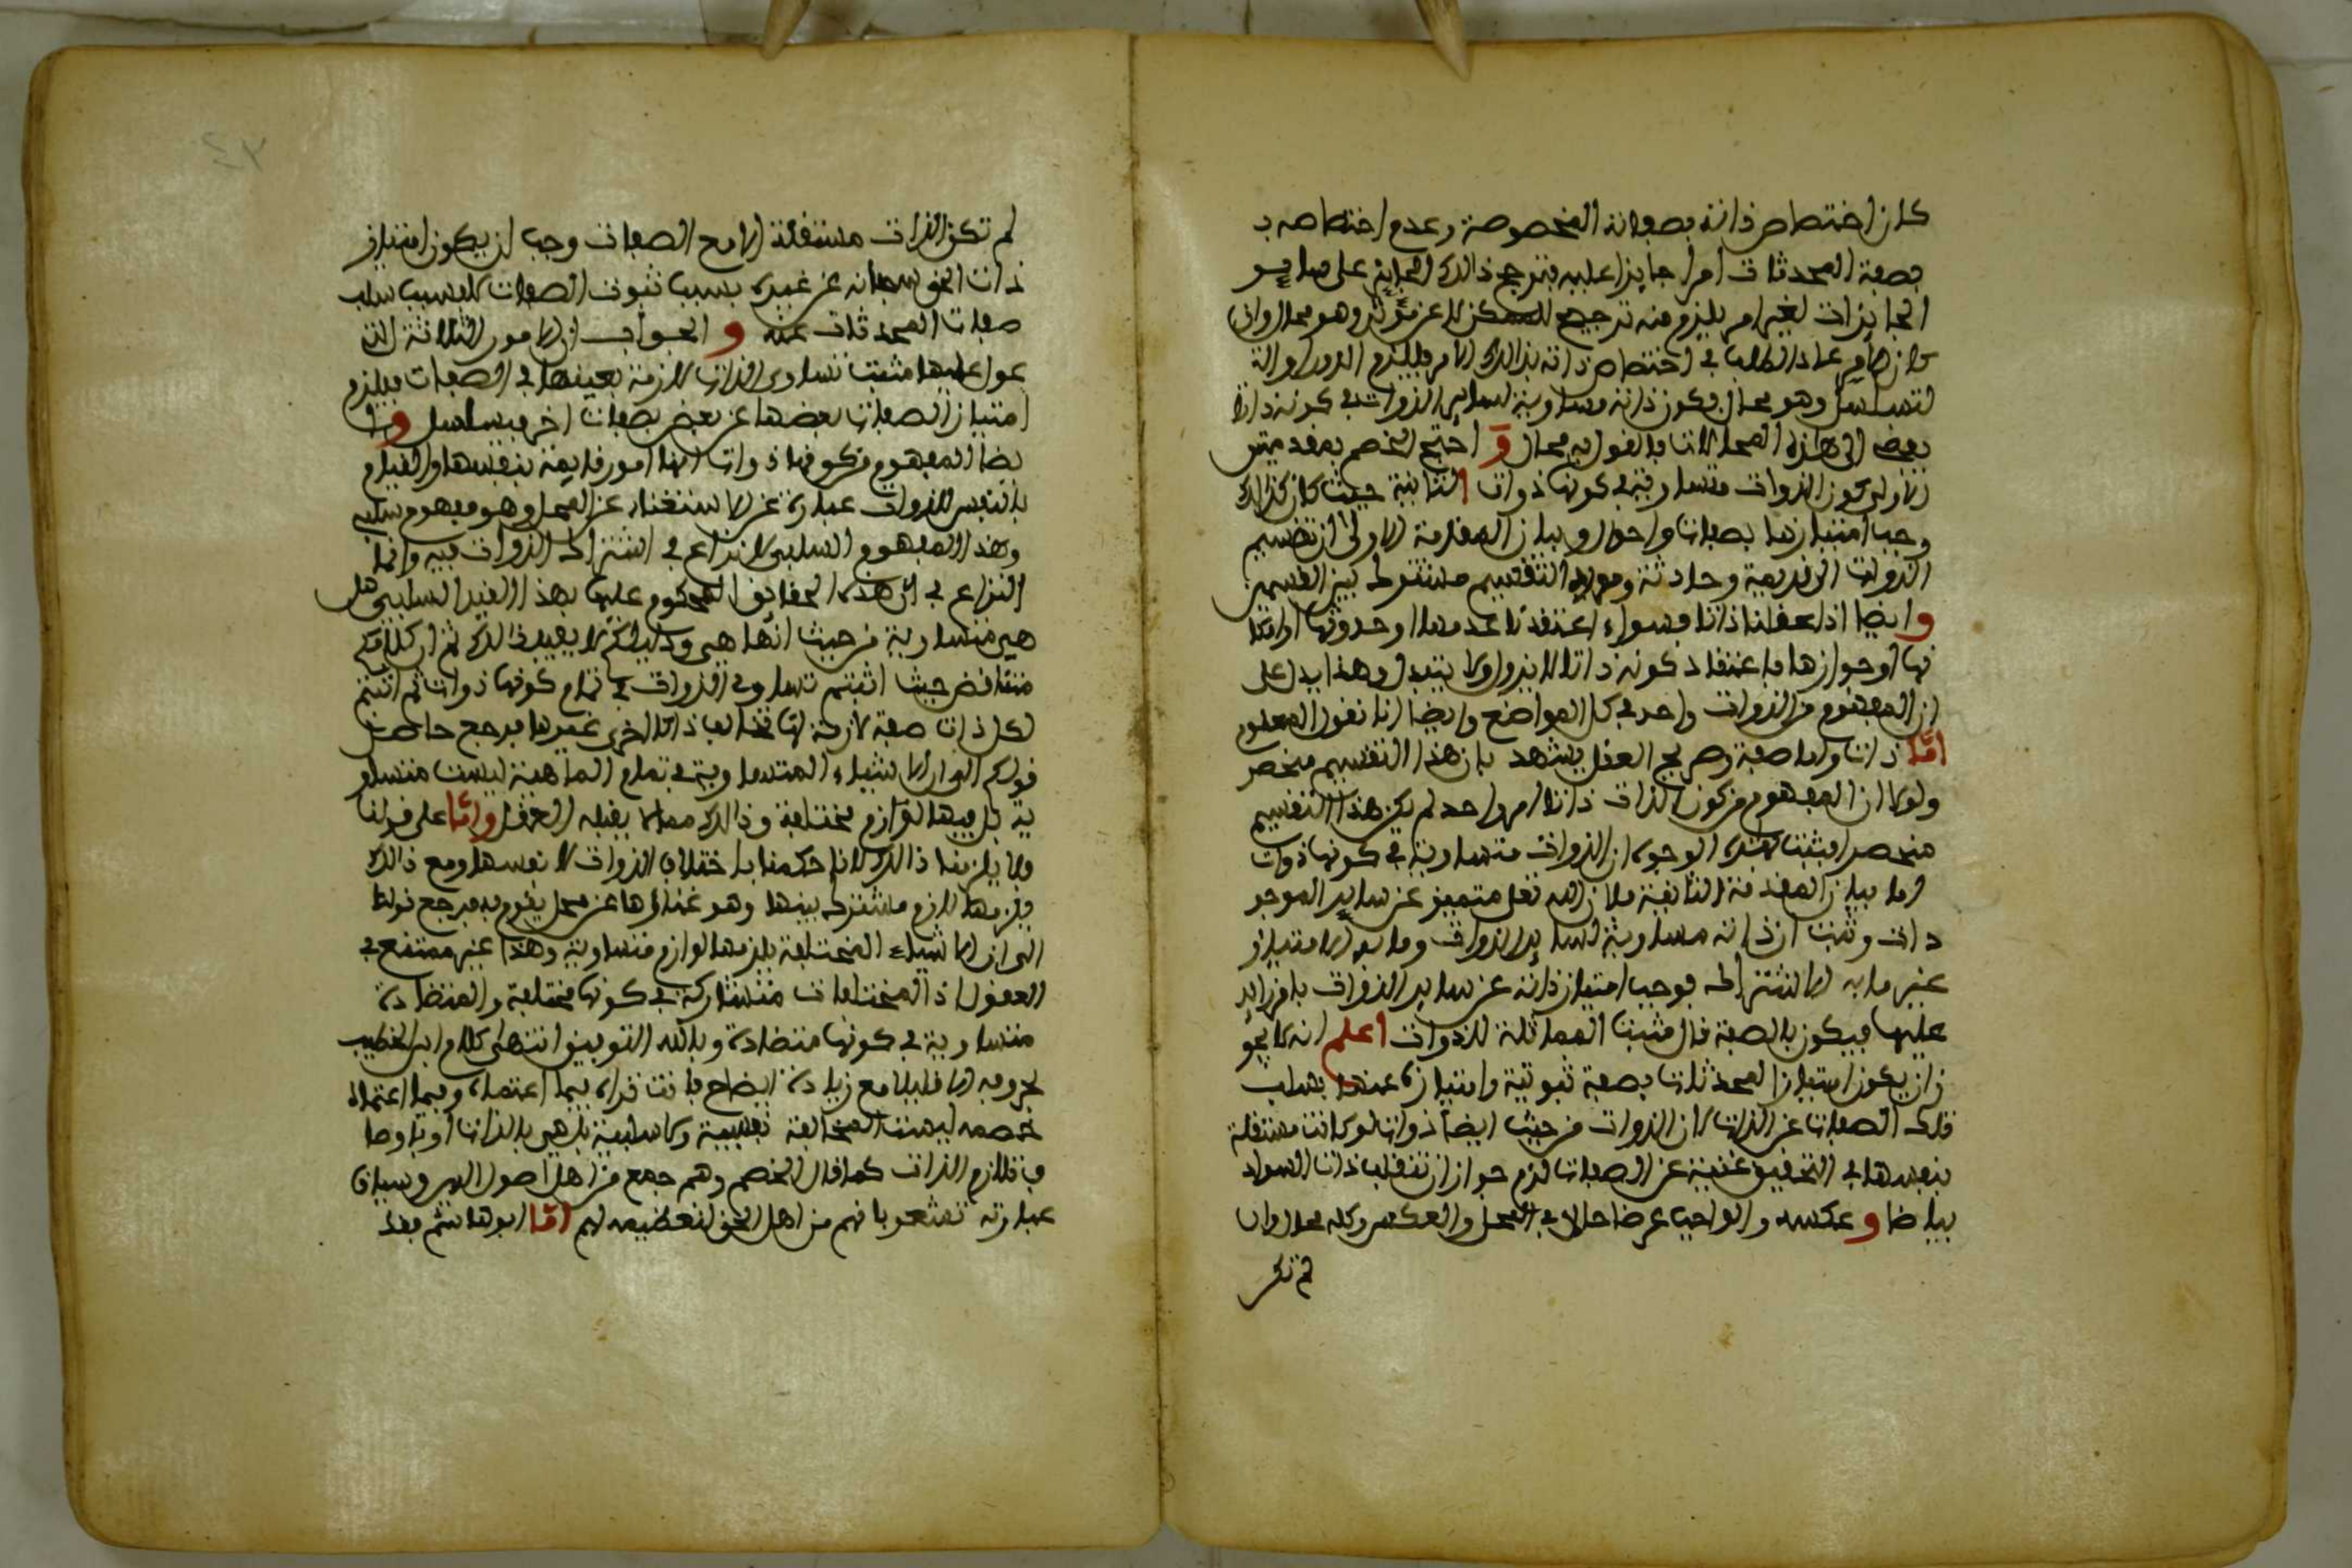 كان اختصاص ذاته بصفاته المخصوصة وعدم اختصاصه بـ
بصفة المحدثات امرا جايزا عليه فترجح ذالك الجايز على ساير
الجايزات لغير امر يلزم منه ترجيح الممكن لا عن مؤثر وهو محال وان
كان لامر عاد الطلب في اختصاص ذاته بذالك الامر فيلزم الدور او التـ
لتسلسل وهو محال فكون ذاته مساوية لساير الذوات في كونه ذاتا
يفضي الى هذه المحالات فالقول به محال و احتج الخصم بمقدمتين
الاولى كون الذوات متساوية في كونها ذوات الثانية حيث كان كذالك
وجب امتيازها بصفات واحوال وبيان المقدمة الاولى ان تقسيم
الذوات الى قديمة وحادثة ومورد التقسيم مشترك بين القسمين
وايضا اذا عقلنا ذاتا فسواء اعتقدنا قدمها او حدوثها او امكا
نها او جوازها فاعتقاد كونه ذاتا لا يزول ولا يتبدل وهذا يدل على
ان المفهوم من الذوات واحد في كل المواضع وايضا انا نقول المعلوم
اما ذات واما صفة وصريح العقل يشهد بان هذا التقسيم منحصر
ولولا ان المفهوم من كون الذات ذاتا امر واحد لم يكن هذا التقسيم
منحصرا فثبت بهذه الوجوه ان الذوات متساوية في كونها ذوات
اما بيان المقدمة الثانية فلان الله تعلى متميز عن ساير الموجو
دات وثبت ان ذاته مساوية لساير الذوات وما به الامتياز
غير ما به الاشتراك فوجب امتياز ذاته عن ساير الذوات بامر زايد
عليها فيكون بالصفة قال مثبت المماثلة للذوات اعلم انه لا يجو
زان يكون امتياز المحدثات بصفة ثبوتية وامتيازه عنها بسلب
تلك الصفات عن الذات لان الذوات من حيث ايضا ذوات لو كانت مستقلة
بنفسها في التحقيق غنية عن الصفات لزم جواز ان تنقلب ذات السواد
بياضا و عكسه والواجب عرضا حالا في المحل والعكس وكله محال وان
لم تكن
لم تكن الذات مستقلة الا مع الصفات وجب ان يكون امتياز
ذات الحق سبحانه عن غيره بسبب ثبوت الصفات لا بسبب سلب
صفات المحدثات عنه و الجواب ان الامور الثلاثة التي
عول عليها مثبت تساوي الذات لازمة بعينها في الصفات فيلزم
امتياز الصفات بعضها عن بعض بصفات اخر فيتسلسل وا
يضا المفهوم من كونها ذوات انها امور قايمة بنفسها والقيام
بالنفس للذوات عبارة عن الاستغناء عن المحل وهو مفهوم سلبي
وهذا المفهوم السلبي لا نزاع في اشتراك الذوات فيه وانما
النزاع في ان هذه الحقائق المحكوم عليها بهذا القيد السلبي هل
هي متساوية من حيث انها هي ودليلكم لا يفيد ذالك ثم ان كلامكم
متناقض حيث اثبتم تساوي الذوات في تمام كونها ذوات ثم اثبتم
لكل ذات صفة لازمة لها تخالف ذاتا اخرى غيرها فرجع حاصل
قولكم الى ان الاشياء المتساوية في تمام الماهية ليست متساو
ية بل فيها لوازم مختلفة وذالك مما لا يقبله العقل واما على قولنا
فلا يلزمنا ذالك لانا حكمنا باختلاف الذوات لا نفسها ومع ذالك
فلزمها لازم مشترك بينها وهو غناؤها عن محل يقوم به فرجع قولنا
الى ان الاشياء المختلفة يلزمها لوازم متساوية وهذا غير ممتنع في
العقول اذ المختلفات متشاركة في كونها مختلفة والمتضادة
متساوية في كونها متضادة وبالله التوفيق انتهى كلام ابن الخطيب
بحروفه الا قليلا مع زيادة ايضاح فانت تراه فيما اعتمده وفيما اعتمده
خصمه ليست المخالفة نفسية ولا سلبية بل هي بالذات او باوصا
ف تلازم الذات كما قال الخصم وهم جمع من اهل اصول الدين وسياق
عبارته تشعر بانهم من اهل الحق لتعظيمه لهم اما ابو هاشم فقد